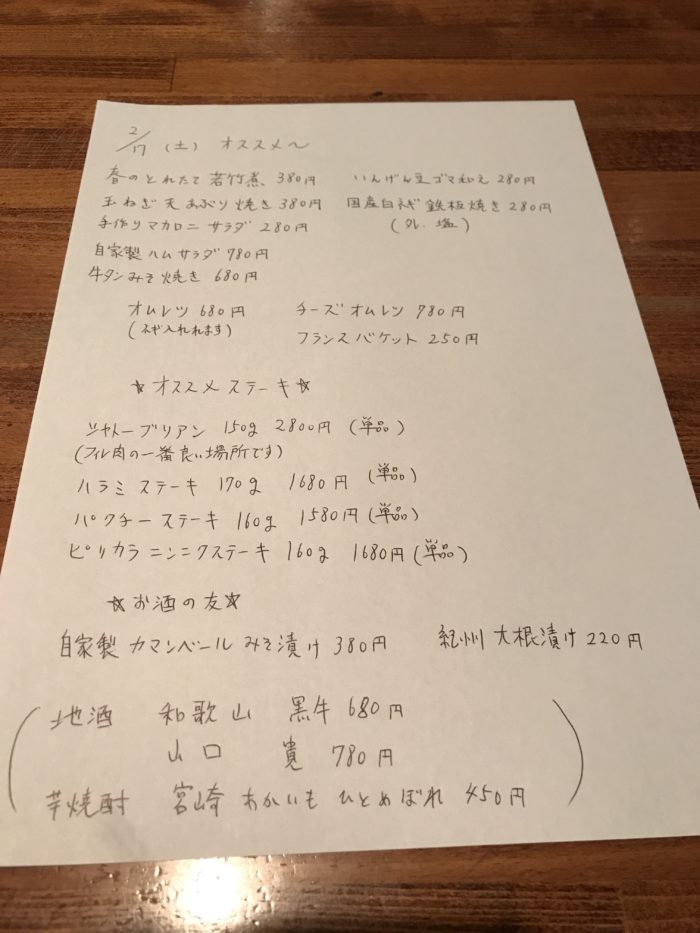 2/17 (土) オススメ〜
春のとれたて 若竹煮、380円 いんげん豆ゴマ和え 280円
玉ねぎ天 あぶり焼き 380円 国産白ネギ鉄板焼き 280円
手作りマカロニサラダ 280円 (タレ、塩)
自家製ハムサラダ 780円
牛タンみそ焼き 680円
オムレツ 680円 チーズオムレツ 780円
(ネギ入れれます) フランスバケット 250円
☆オススメステーキ☆
シャトーブリアン 150g 2800円 (単品)
(フィレ肉の一番良い場所です)
ハラミステーキ 170g 1680円 (単品)
パクチーステーキ 160g 1580円 (単品)
ピリカラニンニクステーキ 160g 1680円 (単品)
☆お酒の友☆
自家製カマンベールみそ漬け 380円 紀州大根漬け 220円
地酒 和歌山 黒牛 680円
山口 貴 780円
芋焼酎 宮崎 あかいも ひとめぼれ 450円